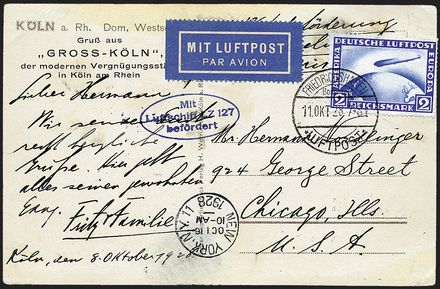 KÖLN a. Rh. Dom,
Gruß aus
„GROSS-KÖLN",
der modernen Vergnügungsstä
in Köln am Rhein
MIT LUFTPOST
PAR AVION
DEUTSCHE LUFTPOST
EUROPA
AMERIKA
2 REICHSMARK 2
FRIEDRICHSHAFEN
11.OKT.28
LUFTPOST
Mit
Luftschiff LZ 127
befördert
Lieber Hermann
Wir senden
recht herzliche
Grüße.
alles seinen gewohnten
Gang.
Fritz & Familie
Köln, den 8. Oktober 1928
Mr Hermann
924 George Street
Chicago, Ills.
U. S. A.
NEW YORK, N.Y. 11
OCT 16
10-AM
1928